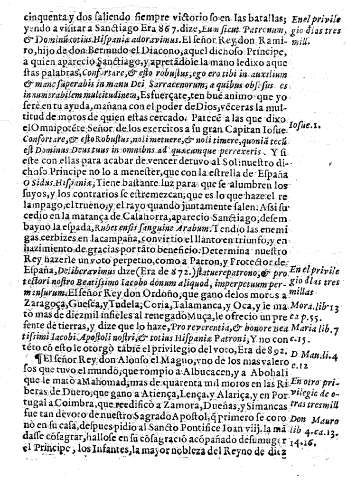 cinquenta y dos saliendo siempre victorioso en las batallas;
yendo a visitar a Sanctiago Era 867. dize, Eum sicut Patronum,
& Dominũ totius Hispaniæ adoravimus. El señor Rey don Rami-
ro, hijo de don Bermudo el Diacono, aquel dichoso Principe,
a quien aparecio Sanctiago, y apretãdole la mano le dixo aque
stas palabras, Confortare, & esto robustus, ego ero tibi in auxilium
& manè superabis in manu Dei Sarracenorum, a quibus obsessus es
innumerabilem multitudinem, Esfuerçate, ten buẽ animo que yo
serè en tu ayuda, mañana con el poder de Dios, vẽceras la mul-
titud de moros de quien estas cercado. Parece a las que dixo
el Omnipotẽte Señor de los exercitos a su gran Capitan Iosue
Confortare, & esto Robustus, noli metuere, & noli timere, quoniã tecũ
est Dominus Deus tuus in omnibus ad quæcumque perrexeris. Y si
este con ellas para acabar de vencer detuvo al Sol: nuestro di-
choso Principe no lo a menester, que con la estrella de España
O Sidus Hispaniæ, Tiene bastante luz para que se alumbren los
suyos, y los contrarios se estremezcan, que es lo que haze el re
lampago, el trueno, y el rayo quando juntamente salen: Assi su
cedio en la matança de Calahorra, aparecio Sanctiago, desem
bayno la espada, Rubet ensis sanguine Arabum. Tendio las enemi
gas cerbizes en la campaña, convirtio el llanto en triunfo, y en
hazimiento de gracias por tãto beneficio. Determina nuestro
Rey hazerle un voto perpetuo, como a Patron, y Protector de
España, Deliberavimus dize (Era de 872.) statuere patrono, & pro
tectori nostro Beatissimo Iacobo donum aliquod, imperpetuum per-
mansurum. El señor Rey don Ordoño, que gano de los moros a
Zaragoça, Guesca, y Tudela, Coria, Talamanca, y Oca, y le ma
tò mas de diez mil infieles al renegado Muça, le ofrecio un pre
sente de tierras, y dize que lo haze, Pro reverentia, & honore Bea
tissimi Iacobi Apostoli nostri, & totius Hispaniæ Patroni, Y no con
tẽto cõ esto le otorgò cãbiẽ el privilegio del voto, Era de 892.
¶ El señor Rey don Alonso el Magno, uno de los mas valero
sos que tuvo el mundo, que rompio a Albucacen, y a Abohali
que le matò a Mahomad, mas de quarenta mil moros en las Ri
beras de Duero; que gano a Atiença, Lença, y Alariça, y en Por
tugal a Coimbra, que reedificò a Zamora, Dueñas, y Simancas
fue tan devoto de nuestro Sagrado Apostol, q̃ primero se coro
nò en su casa, despues pidio al Sancto Pontifice Ioan viij. la mã
dasse cõsagrar, hallose en su cõsagracio acõpañado de su muger
el Principe, y los Infantes, la mayor nobleza del Reyno de diez
En el privile
gio dias tres
mill.
Iosue. 1.
En el privile
gio di as tres
millas
Mora. lib. 13
ca p. 55.
Maria lib. 7
c. 15.
D Mau. li. 4
c. 12
En otro pri-
vilegie de o-
tras tres mill
Don Mauro
lib 4. ca. 13.
14. 16.